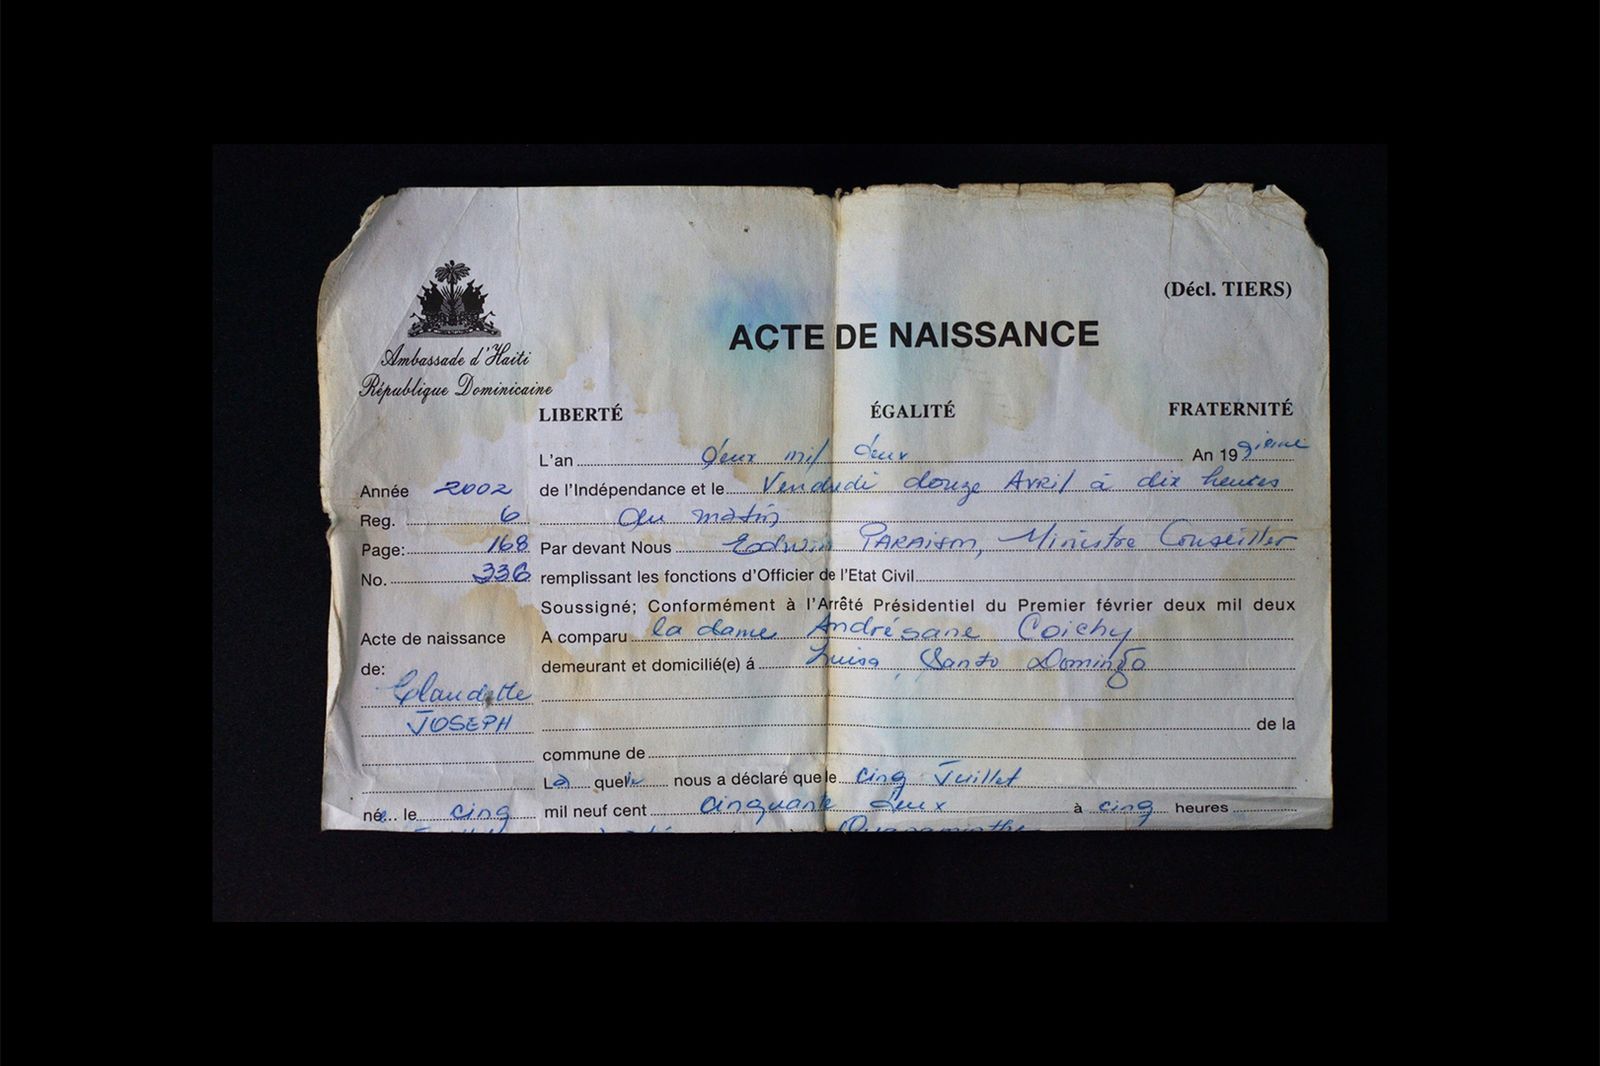 (Décl. TIERS)
ACTE DE NAISSANCE
Ambassade d'Haiti
République Dominicaine
LIBERTÉ ÉGALITÉ FRATERNITÉ
L'an deux mil deux An 199ieme
Année 2002 de l'Indépendance et le Vendredi douze Avril à dix heures
Reg. 6 du matin
Page: 168 Par devant Nous Edwin PARAISON, Ministre Conseiller
No. 336 remplissant les fonctions d'Officier de l'Etat Civil
Soussigné; Conformément à l'Arrêté Présidentiel du Premier février deux mil deux
Acte de naissance A comparu la dame Andrésane Coichy
de: demeurant et domicilié(e) á Luisa, Santo Domingo
Claudette
JOSEPH de la
commune de
Là quelle nous a déclaré que le cinq Juillet
née le cinq mil neuf cent cinquante deux à cinq heures
Ouanaminthe